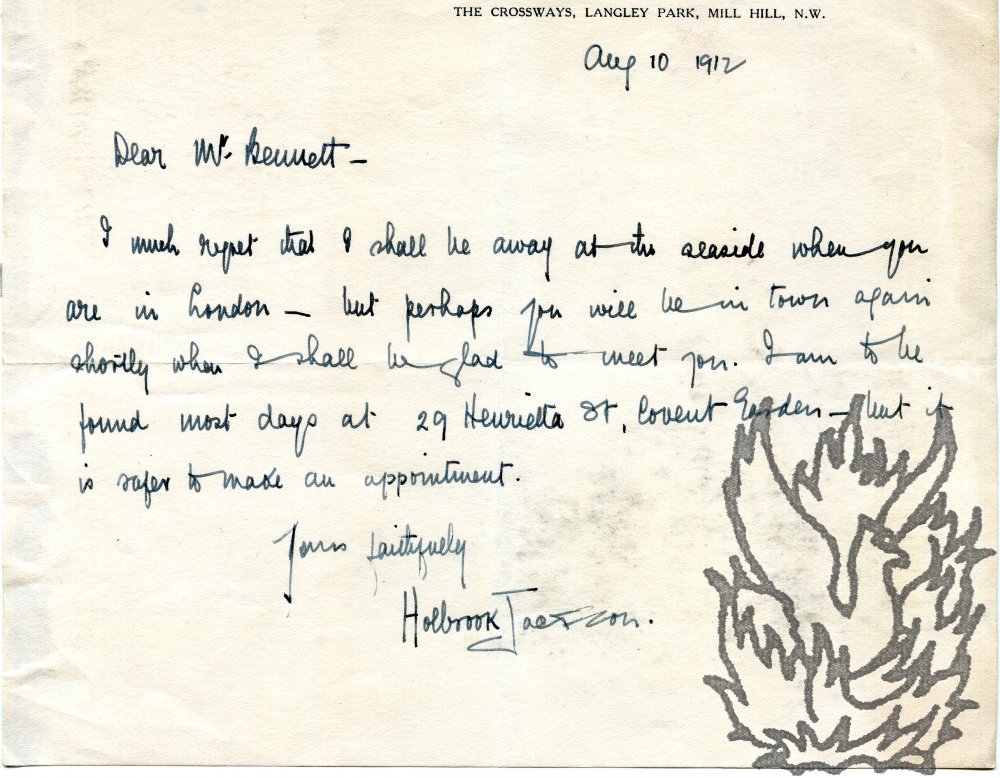 THE CROSSWAYS, LANGLEY PARK, MILL HILL, N.W.
Aug 10 1912
Dear Mr. Bennett —
I much regret that I shall be away at the seaside when you
are in London — but perhaps you will be in town again
shortly when I shall be glad to meet you. I am to be
found most days at 29 Henrietta St, Covent Garden — but it
is safer to make an appointment.
Yours faithfully
Holbrook Jackson.